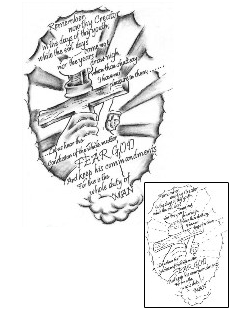 Remember
now thy Creator
in the days of thy youth,
while the evil days
come not
nor the years draw nigh,
when thou shalt say
I have no
pleasure in them;
Let us hear the
conclusion of the whole matter
FEAR GOD
And keep his commandments
For this is the
whole duty of
MAN